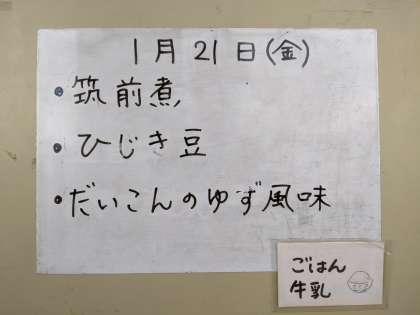 1月21日(金)
・筑前煮
・ひじき豆
・だいこんのゆず風味
ごはん
牛乳